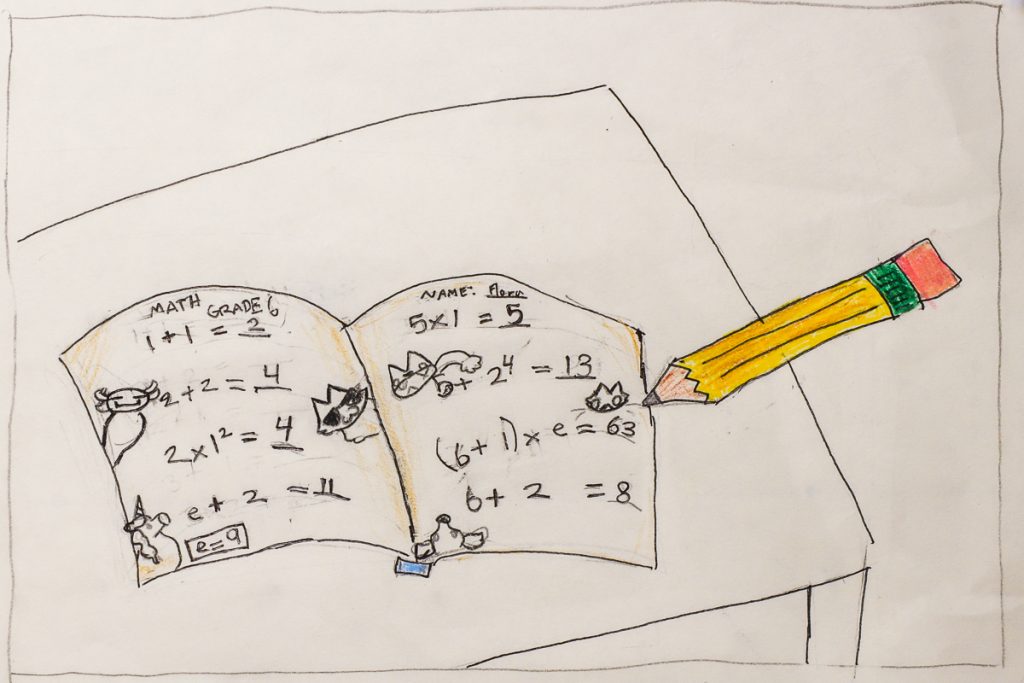 MATH GRADE 6
1+1 = 2
2+2 = 4
2×1² = 4
e+ 2 = 11
e=9
NAME: Flora
5×1 = 5
+ 2⁴ = 13
(6+1)× e = 63
6+ 2 = 8